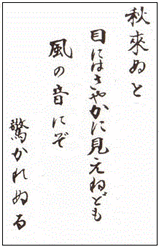 秋來ぬと
目にはさやかに見えねども
風の音にぞ
驚かれぬる